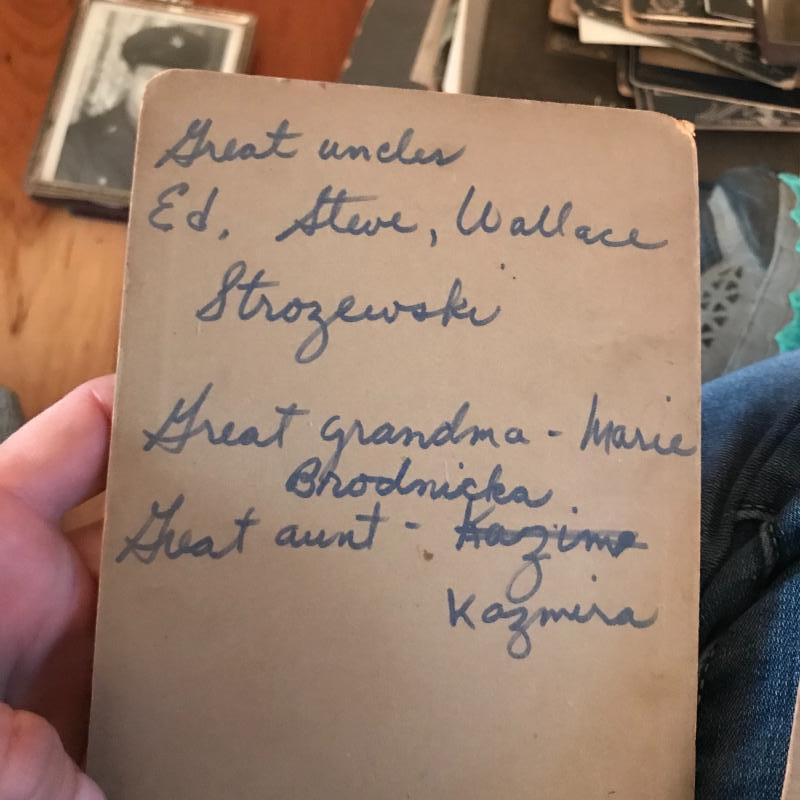 Great uncles
Ed, Steve, Wallace
Strozewski
Great grandma - Marie
Brodnicka
Great aunt - Kazima
Kazmira